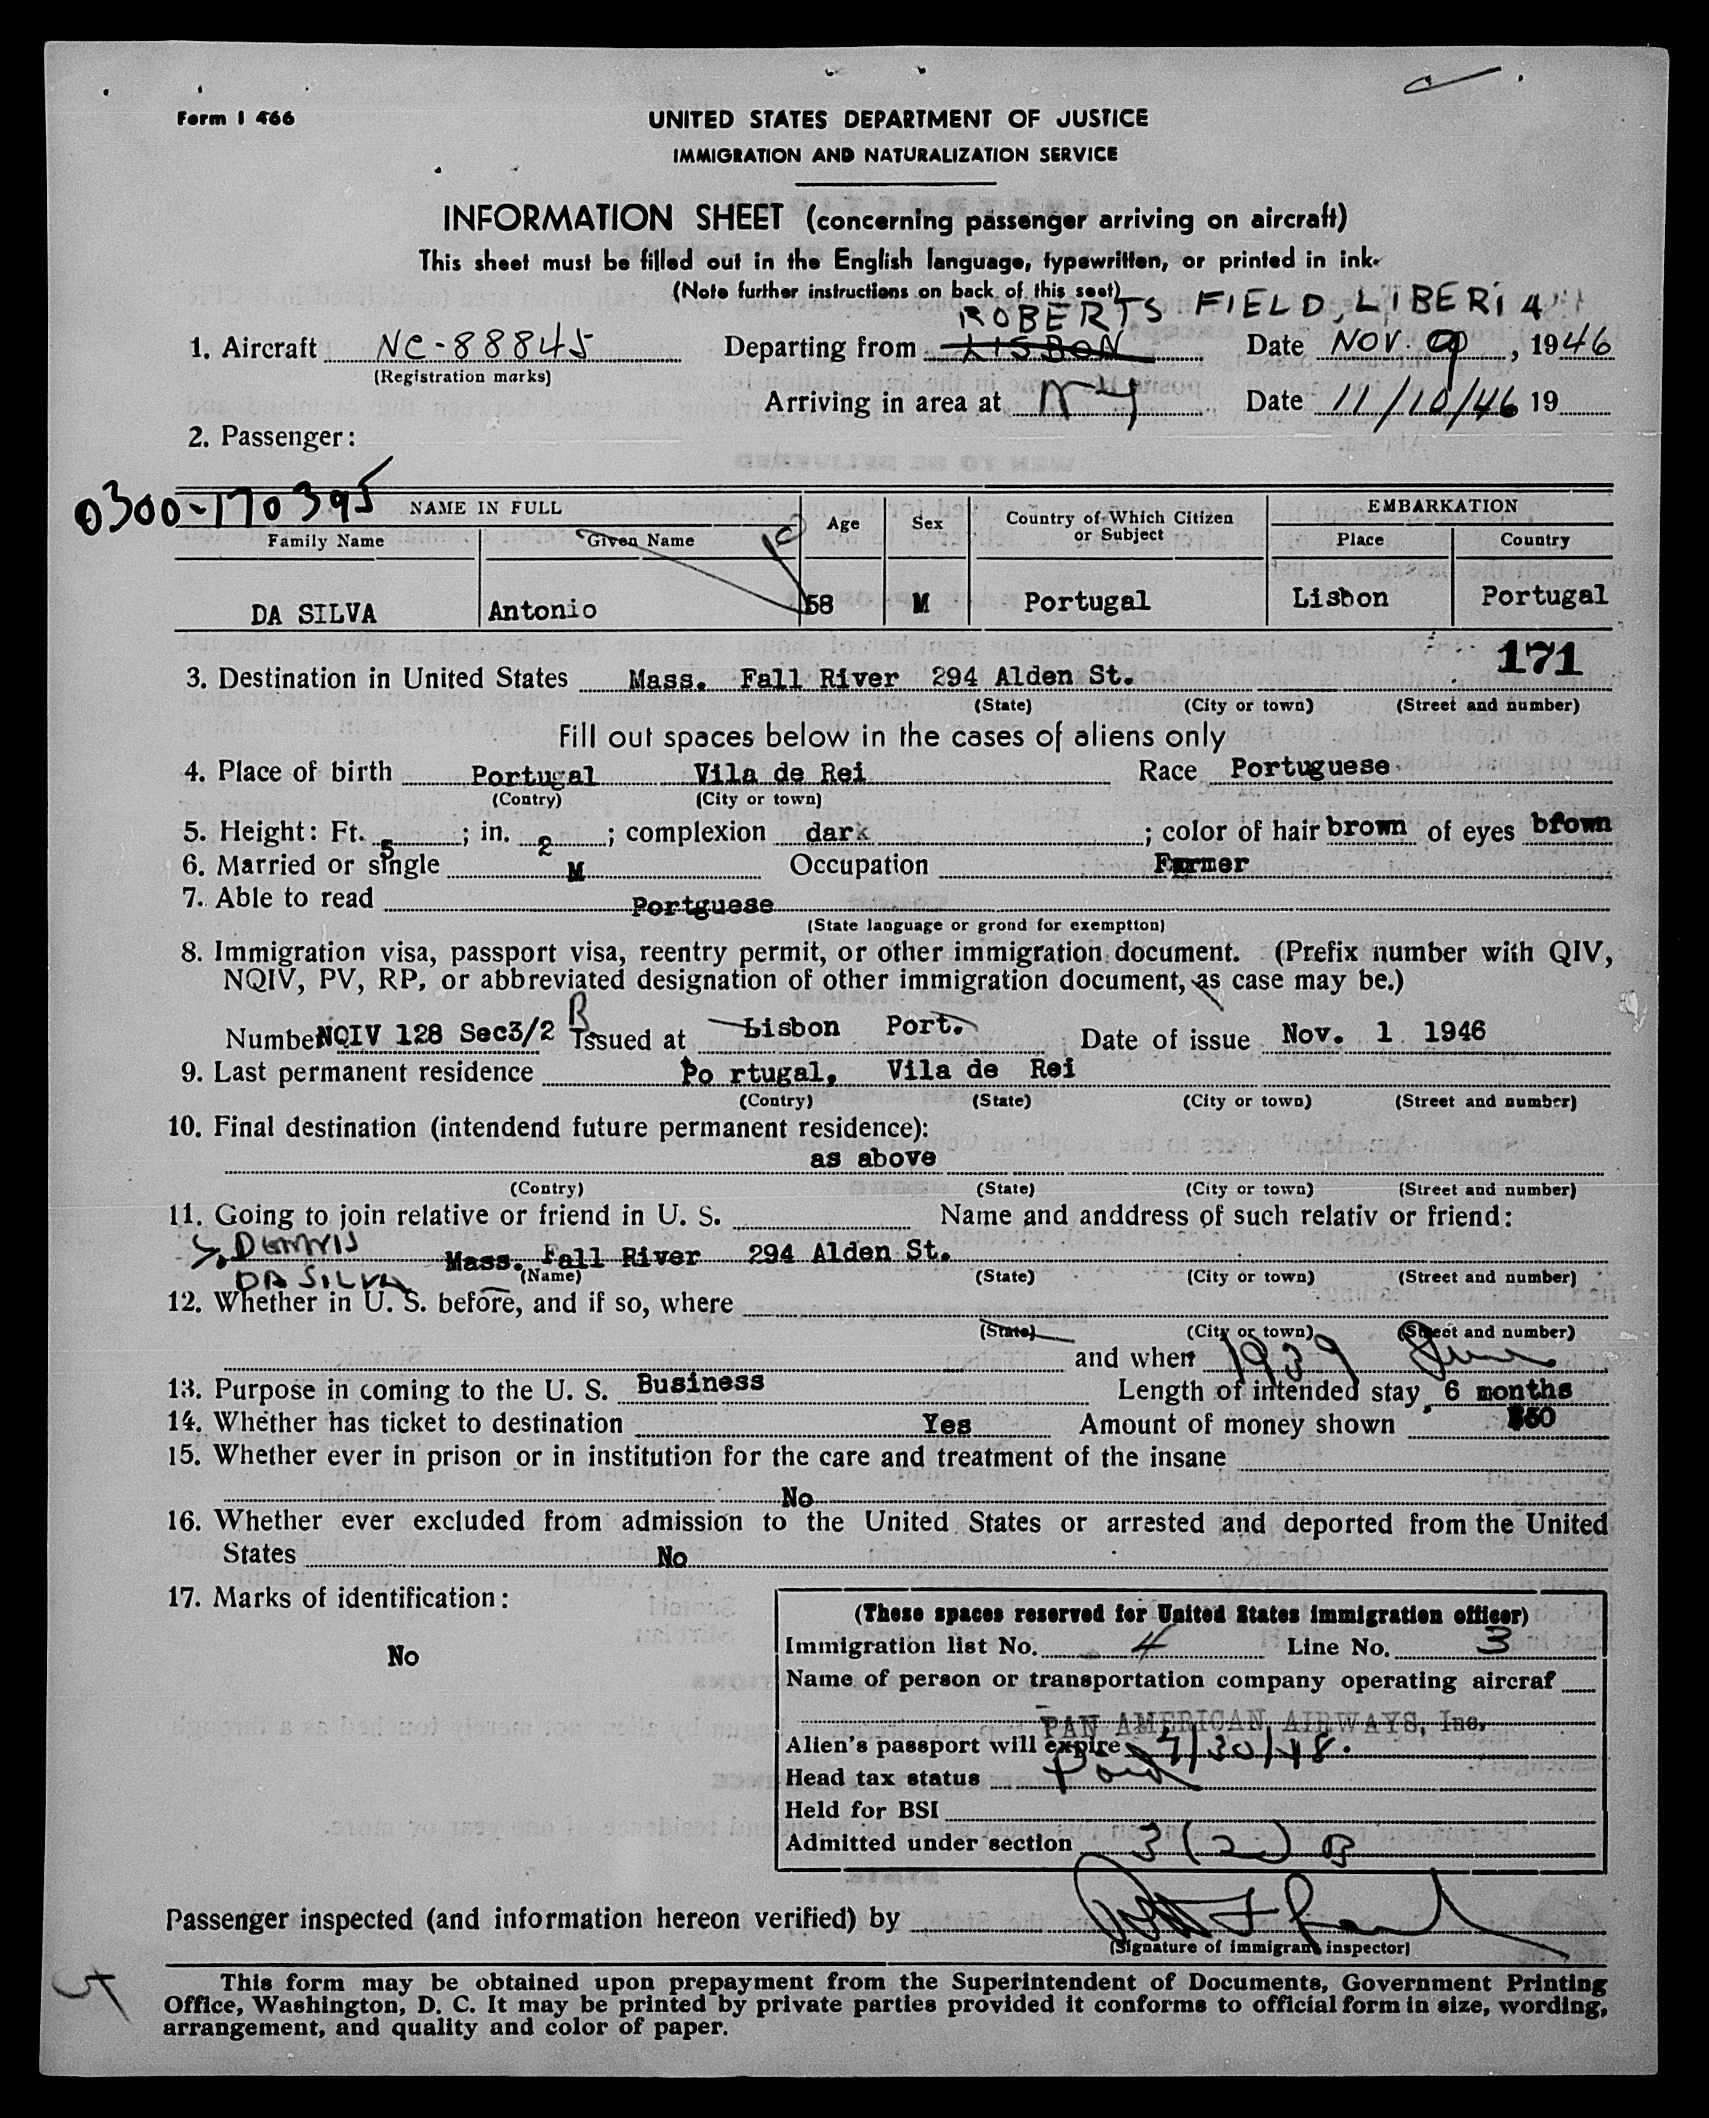 Form I 466
UNITED STATES DEPARTMENT OF JUSTICE
IMMIGRATION AND NATURALIZATION SERVICE
INFORMATION SHEET (concerning passenger arriving on aircraft)
This sheet must be filled out in the English language, typewritten, or printed in ink.
(Note further instructions on back of this seet)
ROBERTS FIELD, LIBERIA
1. Aircraft NC-88845 Departing from LISBON Date NOV. 9, 1946
(Registration marks)
Arriving in area at NY Date 11/10/46 19
2. Passenger:
0300-170395
NAME IN FULL Age Sex Country of Which Citizen or Subject EMBARKATION
Family Name Given Name Place Country
DA SILVA Antonio 58 M Portugal Lisbon Portugal
171
3. Destination in United States Mass. Fall River 294 Alden St.
(State) (City or town) (Street and number)
Fill out spaces below in the cases of aliens only
4. Place of birth Portugal Vila de Rei Race Portuguese
(Contry) (City or town)
5. Height: Ft. 5; in. 2; complexion dark; color of hair brown of eyes brown
6. Married or single M Occupation Farmer
7. Able to read Portguese
(State language or grond for exemption)
8. Immigration visa, passport visa, reentry permit, or other immigration document. (Prefix number with QIV,
NQIV, PV, RP, or abbreviated designation of other immigration document, as case may be.)
Number NQIV 128 Sec3/2 B Issued at Lisbon Port. Date of issue Nov. 1 1946
9. Last permanent residence Po rtugal, Vila de Rei
(Contry) (State) (City or town) (Street and number)
10. Final destination (intendend future permanent residence):
as above
(Contry) (State) (City or town) (Street and number)
11. Going to join relative or friend in U. S. Name and anddress of such relativ or friend:
S. DENNIS
DA SILVA Mass. Fall River 294 Alden St.
(Name) (State) (City or town) (Street and number)
12. Whether in U. S. before, and if so, where
(State) (City or town) (Street and number)
and when 1939 June
13. Purpose in coming to the U. S. Business Length of intended stay 6 months
14. Whether has ticket to destination Yes Amount of money shown $50
15. Whether ever in prison or in institution for the care and treatment of the insane
No
16. Whether ever excluded from admission to the United States or arrested and deported from the United
States No
17. Marks of identification:
No
(These spaces reserved for United States immigration officer)
Immigration list No. 4 Line No. 3
Name of person or transportation company operating aircraf
PAN AMERICAN AIRWAYS, Inc.
Alien's passport will expire 4/30/48.
Head tax status Paid
Held for BSI
Admitted under section 3(2) B
Passenger inspected (and information hereon verified) by
(Signature of immigrant inspector)
This form may be obtained upon prepayment from the Superintendent of Documents, Government Printing
Office, Washington, D. C. It may be printed by private parties provided it conforms to official form in size, wording,
arrangement, and quality and color of paper.